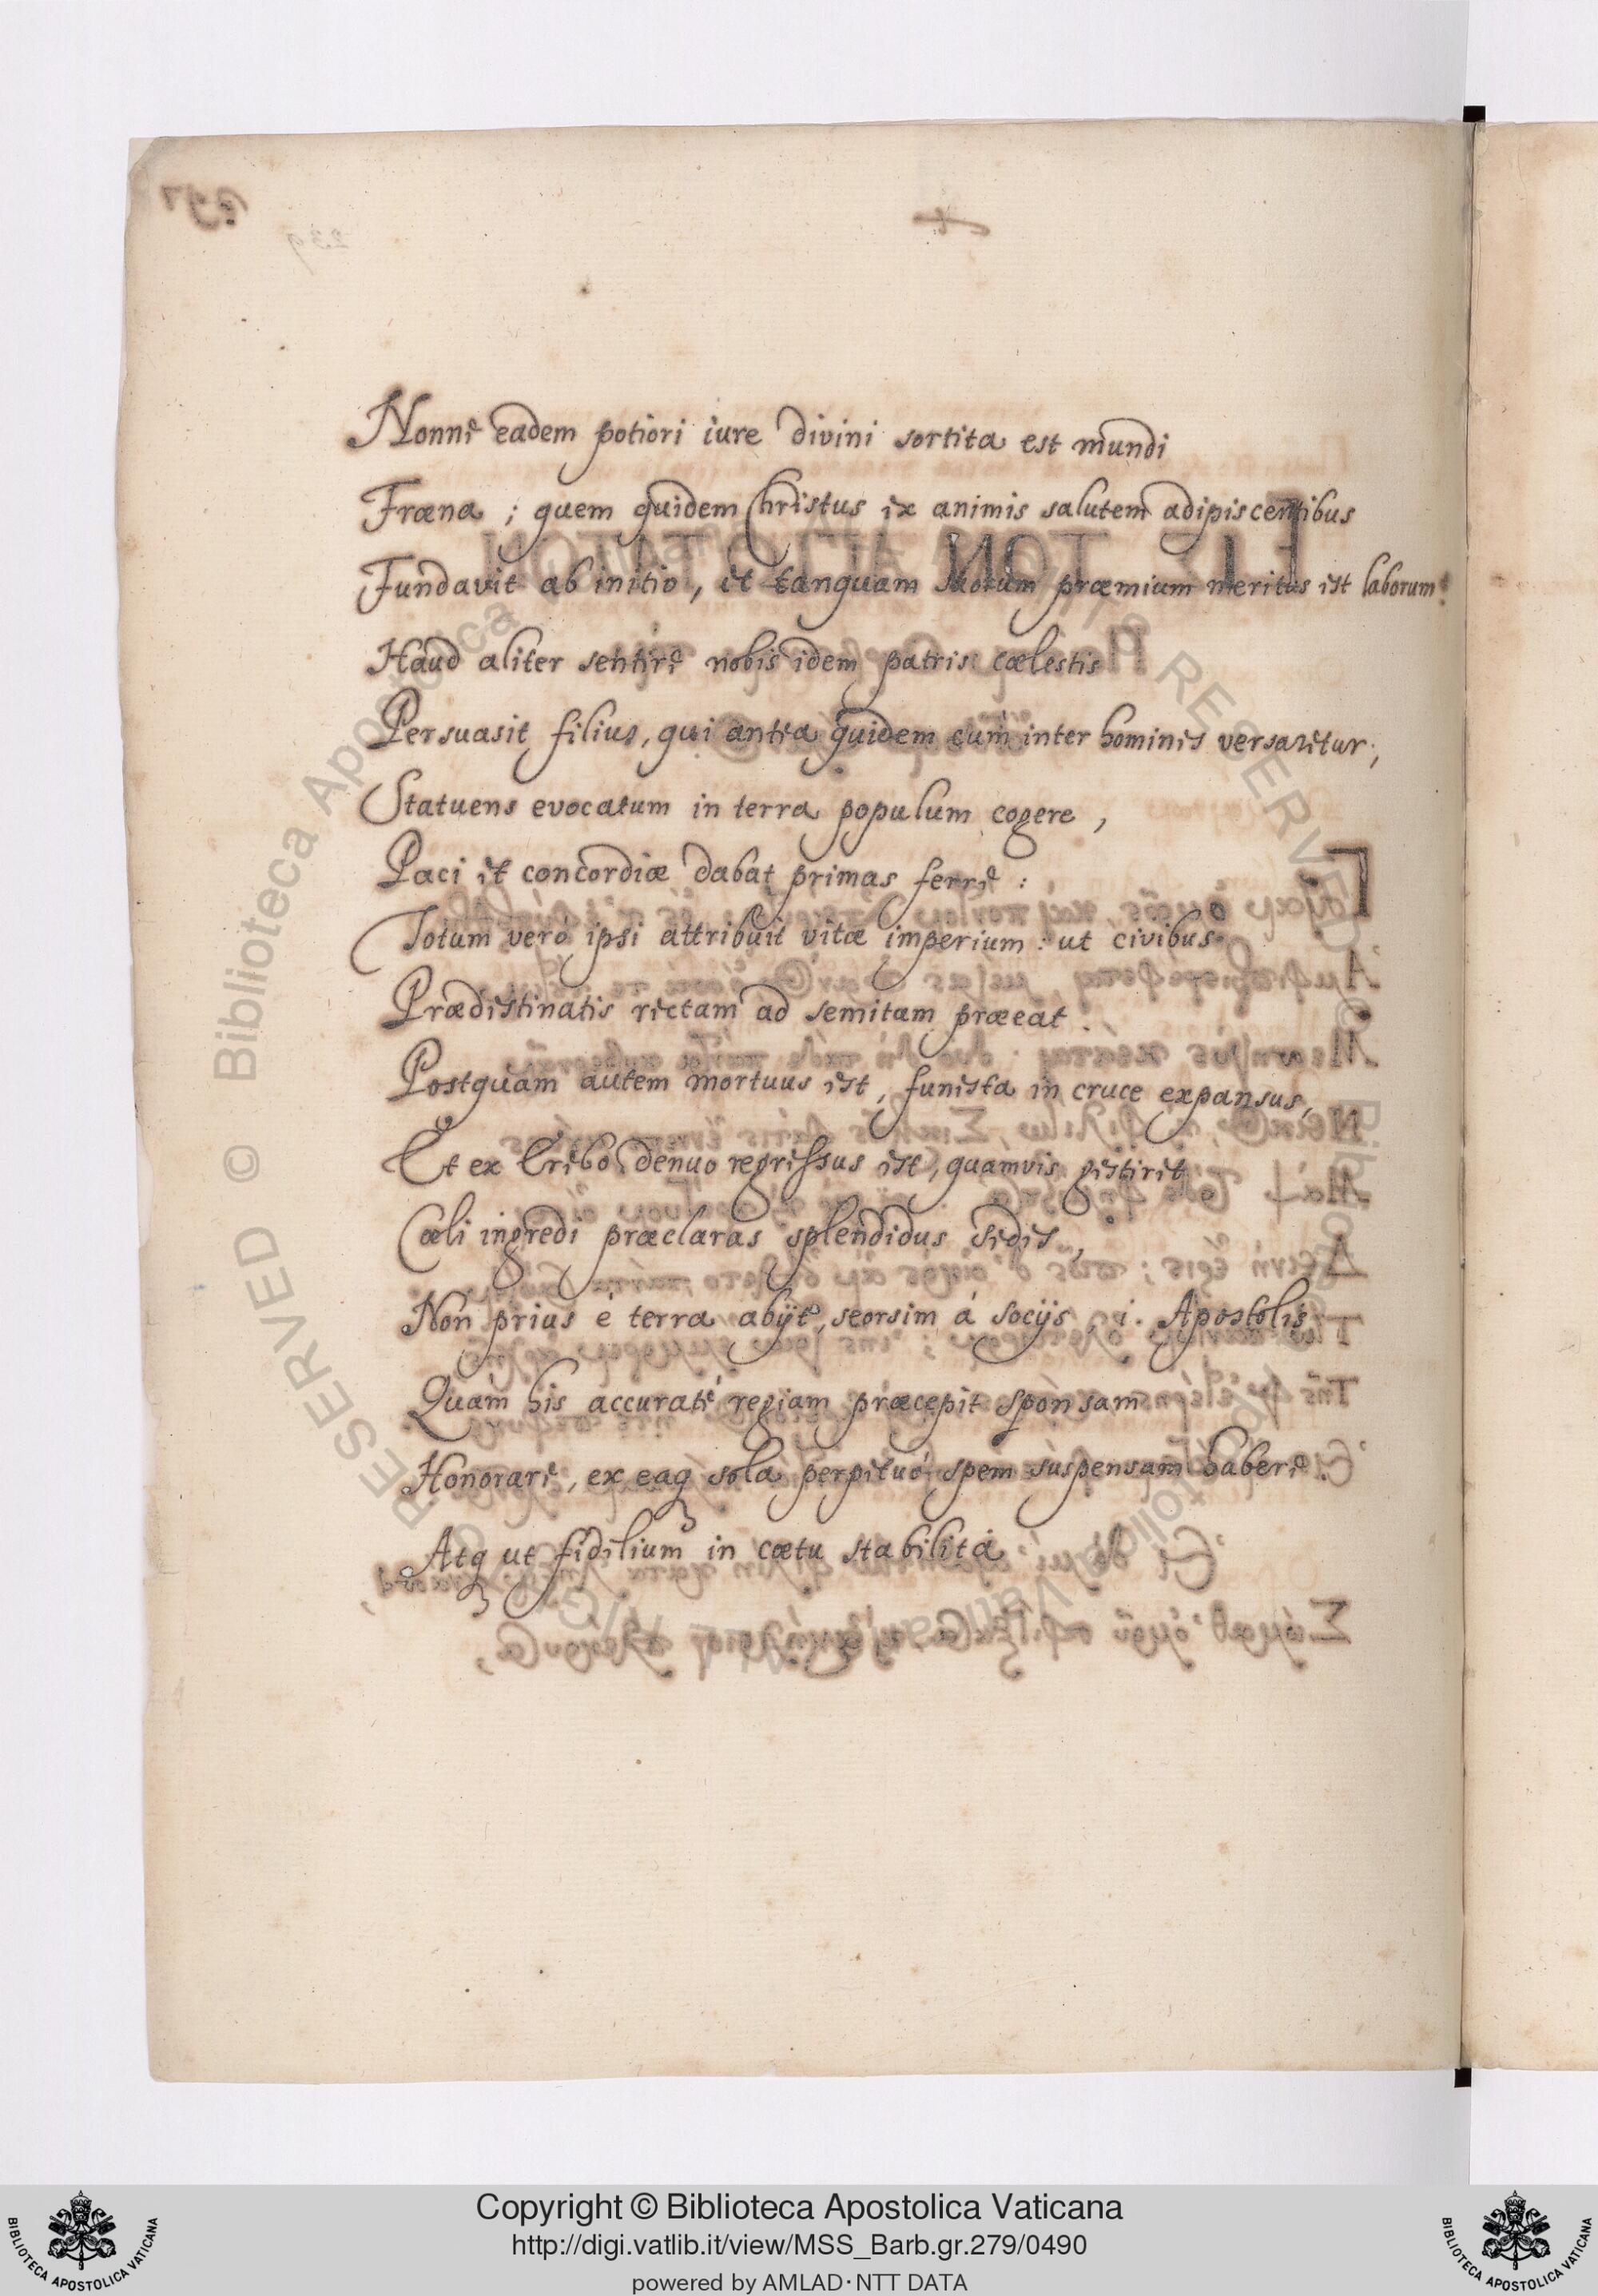 Nonne eadem potiori iure divini sortita est mundi
Fræna ; quem quidem Christus ex animis salutem adipiscentibus
Fundavit ab initio, et tanquam suorum præmium meritus est laborum?
Haud aliter sentire nobis idem patris cælestis
Persuasit filius, qui antea quidem cum inter homines versaretur;
Statuens evocatum in terra populum cogere,
Paci et concordiæ dabat primas ferre :
Totum verò ipsi attribuit vitæ imperium : ut civibus
Prædestinatis rectam ad semitam præeat.
Postquam autem mortuus est, funesta in cruce expansus,
Et ex Erebo denuo regressus est, quamvis gestiret
Cæli ingredi præclaras splendidus sedes,
Non prius è terra abijt, seorsim à socijs, i. Apostolis
Quàm his accuratè regiam præcepit sponsam
Honorare, ex eaq sola perpetuò spem suspensam habere.
Atq ut fidelium in cœtu stabilita
Copyright © Biblioteca Apostolica Vaticana
http://digi.vatlib.it/view/MSS_Barb.gr.279/0490
powered by AMLAD·NTT DATA
BIBLIOTECA APOSTOLICA VATICANA
BIBLIOTECA APOSTOLICA VATICANA